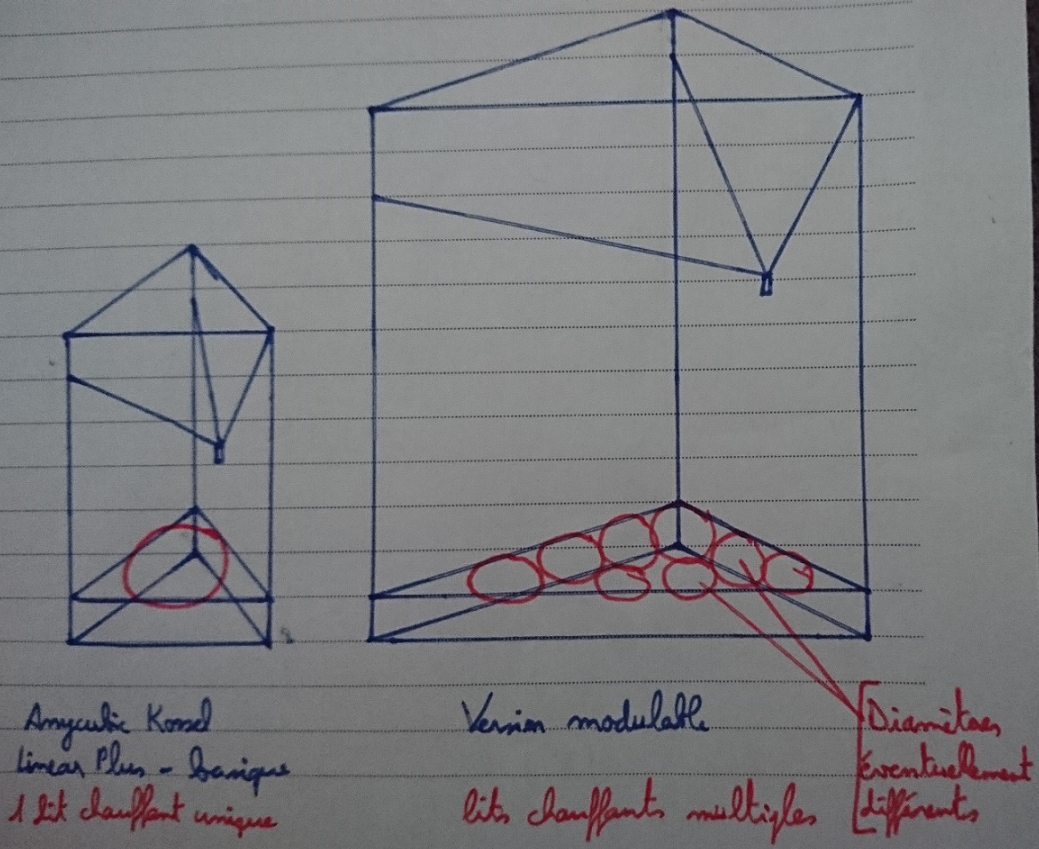 Anycubic Kossel
Linear Plus - basique
1 lit chauffant unique
Version modulable
lits chauffants multiples
Diamètres
éventuellement
différents